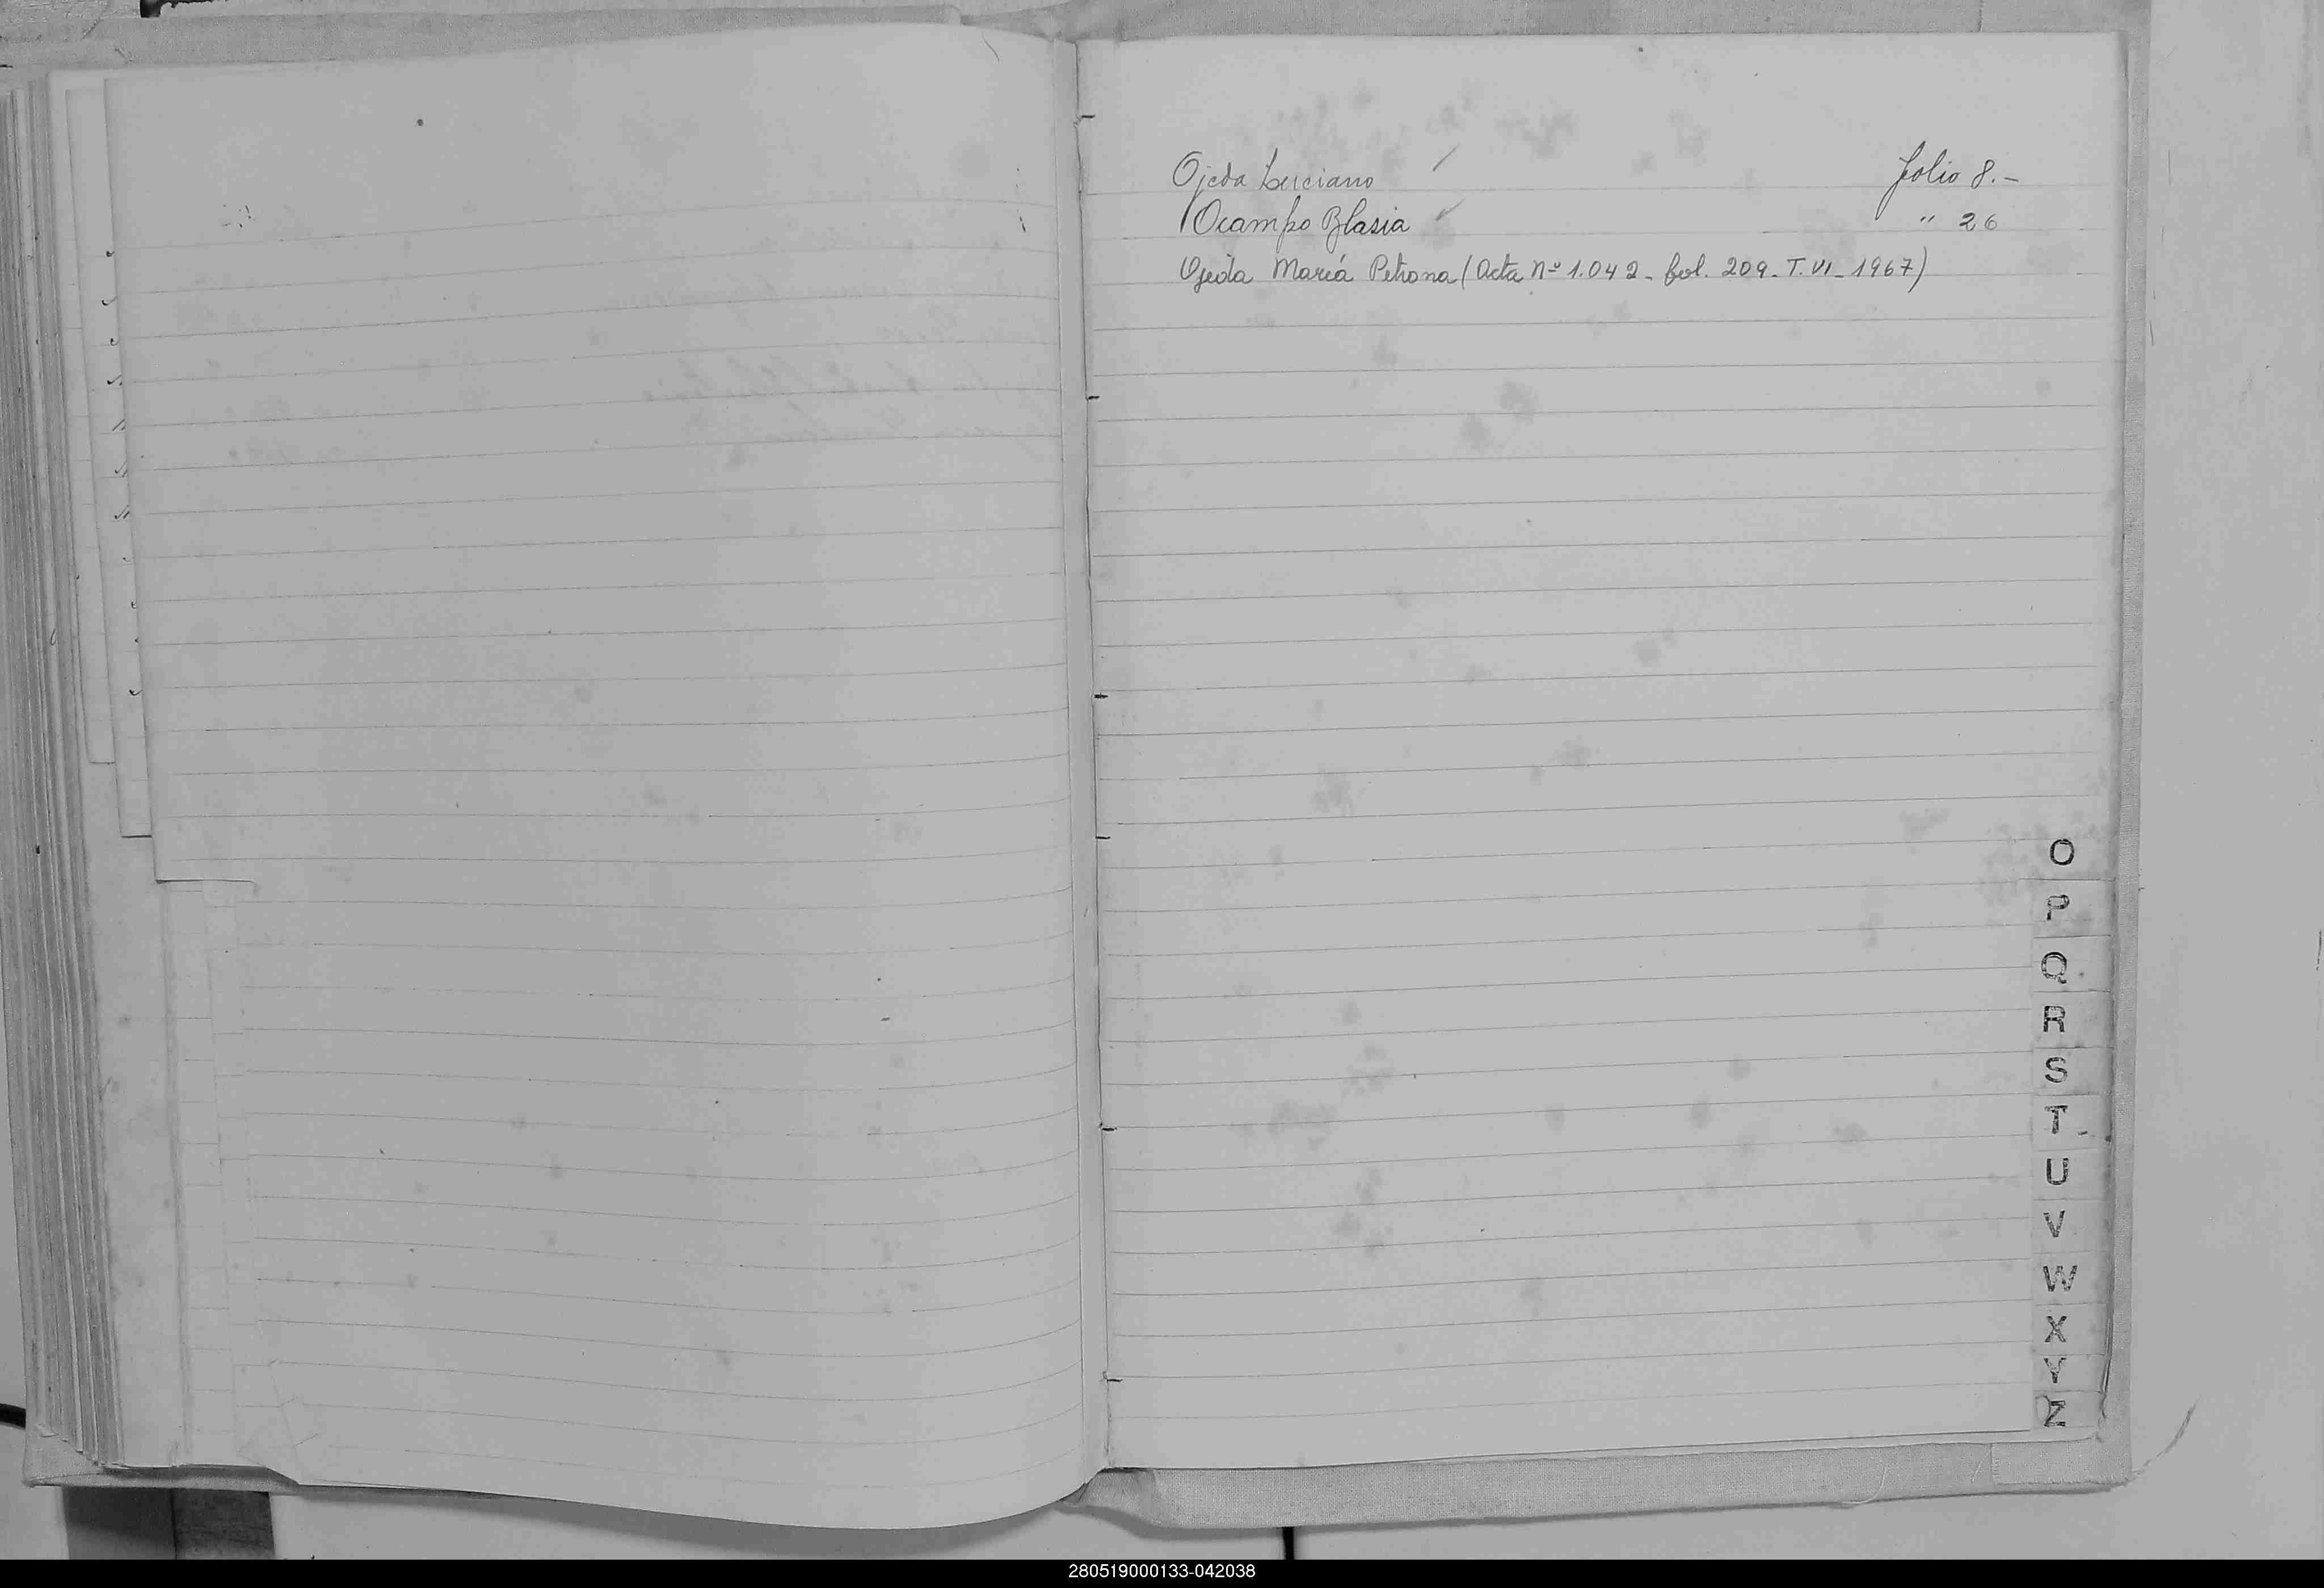 Ojeda Luciano folio 8.-
Ocampo Blasia " 26
Ojeda María Petrona (Acta Nº 1.042 - fol. 209 - T. VI - 1967)
O
P
Q
R
S
T
U
V
W
X
Y
Z
280519000133-042038